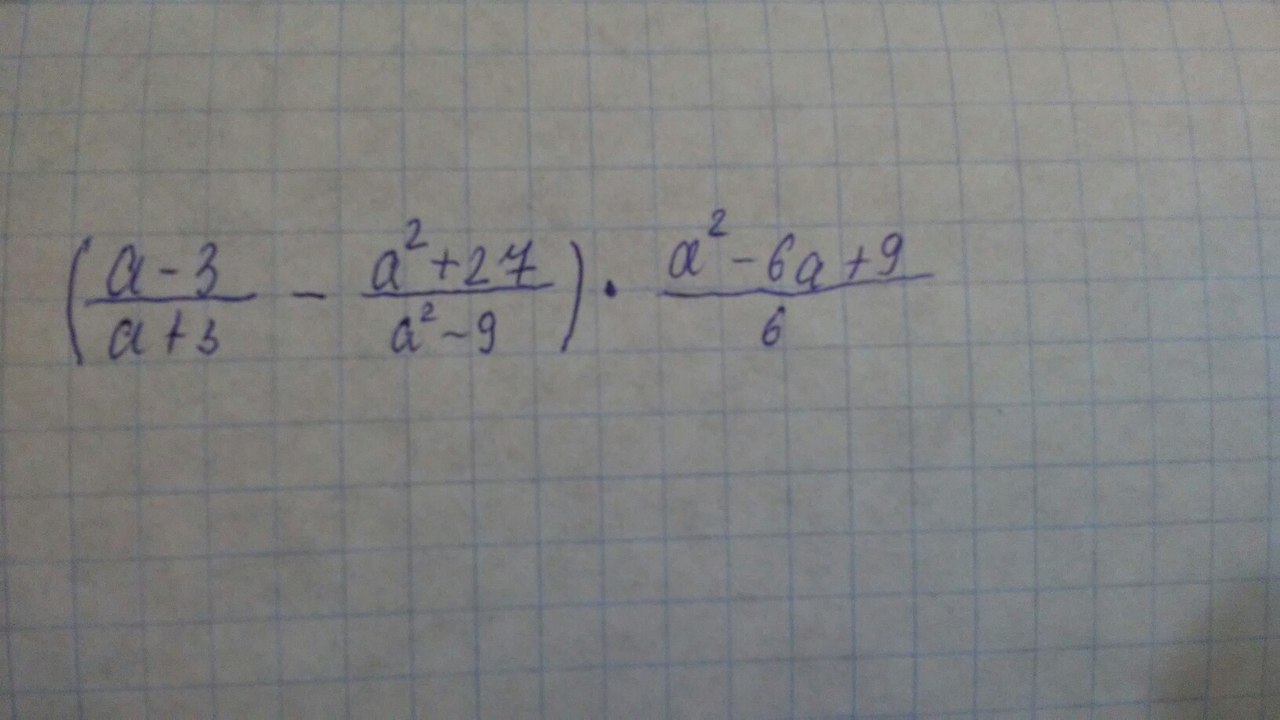 (\frac{a-3}{a+3} - \frac{a^2+27}{a^2-9}) \cdot \frac{a^2-6a+9}{6}